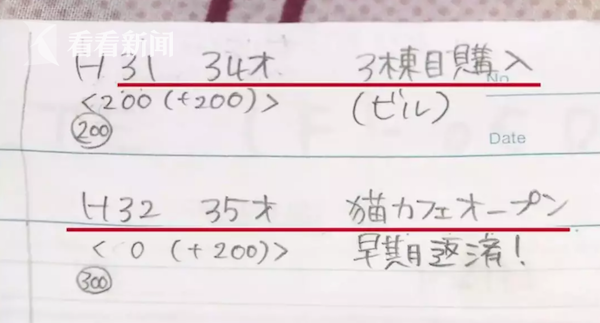 看看新闻
H31 34才 3棟目購入
No
<200 (+200)> (ビル)
200
Date
H32 35才 猫カフェオープン
< 0 (+200)> 早期返済!
300